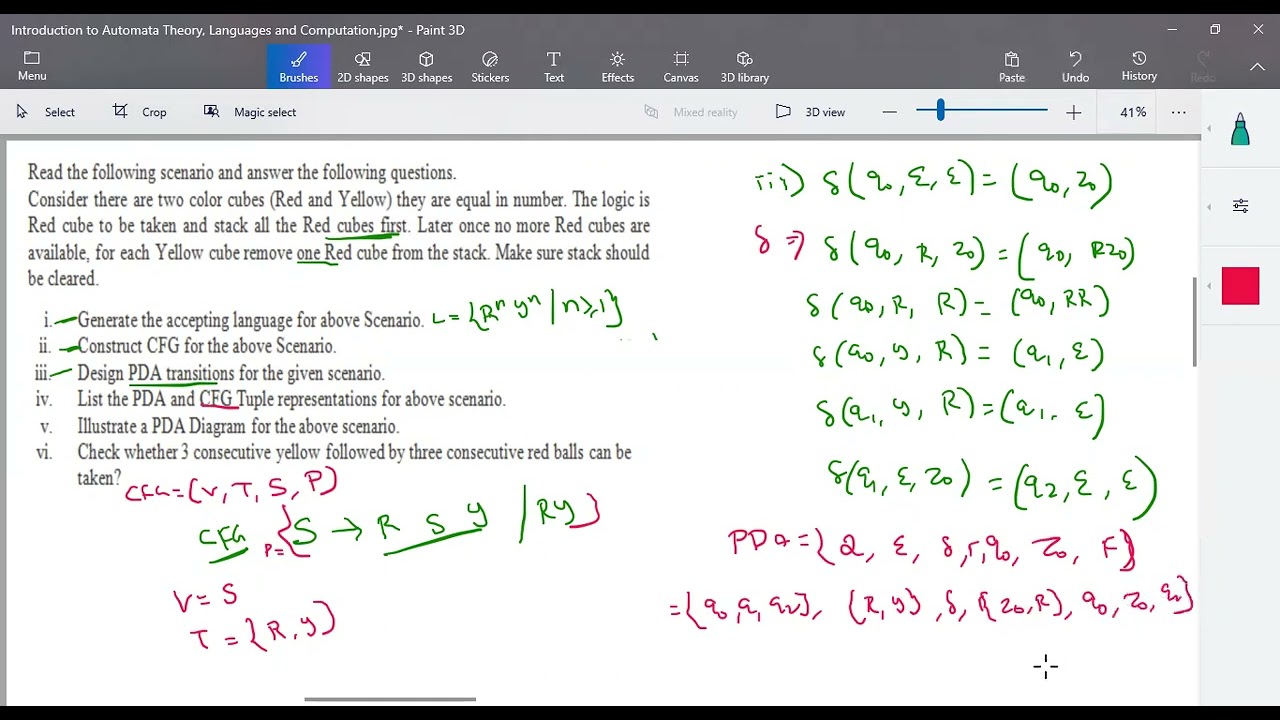 Introduction to Automata Theory, Languages and Computation.jpg* - Paint 3D
Menu
Brushes
2D shapes
3D shapes
Stickers
Text
Effects
Canvas
3D library
Paste
Undo
History
Redo
Select
Crop
Magic select
Mixed reality
3D view
41%
Read the following scenario and answer the following questions.
Consider there are two color cubes (Red and Yellow) they are equal in number. The logic is
Red cube to be taken and stack all the Red cubes first. Later once no more Red cubes are
available, for each Yellow cube remove one Red cube from the stack. Make sure stack should
be cleared.
i. Generate the accepting language for above Scenario. L = {Rⁿ yⁿ | n≥1}
ii. Construct CFG for the above Scenario.
iii. Design PDA transitions for the given scenario.
iv. List the PDA and CFG Tuple representations for above scenario.
v. Illustrate a PDA Diagram for the above scenario.
vi. Check whether 3 consecutive yellow followed by three consecutive red balls can be
taken?
CFG = (V, T, S, P)
CFG P = { S → R S y | Ry }
V = S
T = {R, y}
iii) δ(q0, ε, ε) = (q0, z0)
δ ⇒ δ(q0, R, z0) = (q0, Rz0)
δ(q0, R, R) = (q0, RR)
δ(q0, y, R) = (q1, ε)
δ(q1, y, R) = (q1, ε)
δ(q1, ε, z0) = (q2, ε, ε)
PDA = {Q, Σ, δ, Γ, q0, z0, F}
= {q0, q1 q2}, {R, y}, δ, {z0, R}, q0, z0, q2}